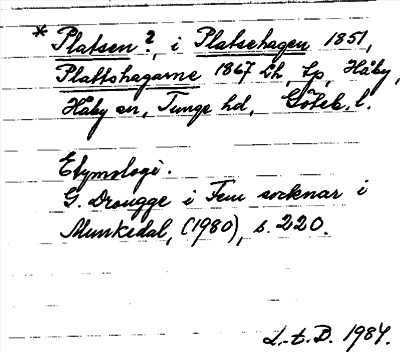 * Platsen?, i Platsehagen 1851,
Plattshagarne 1867 Lh, tp, Håby,
Håby sn, Tunge hd, Göteb. l.
Etymologi.
G. Drougge i Fem socknar i
Munkedal, (1980), s. 220.
L.-t. D. 1987.